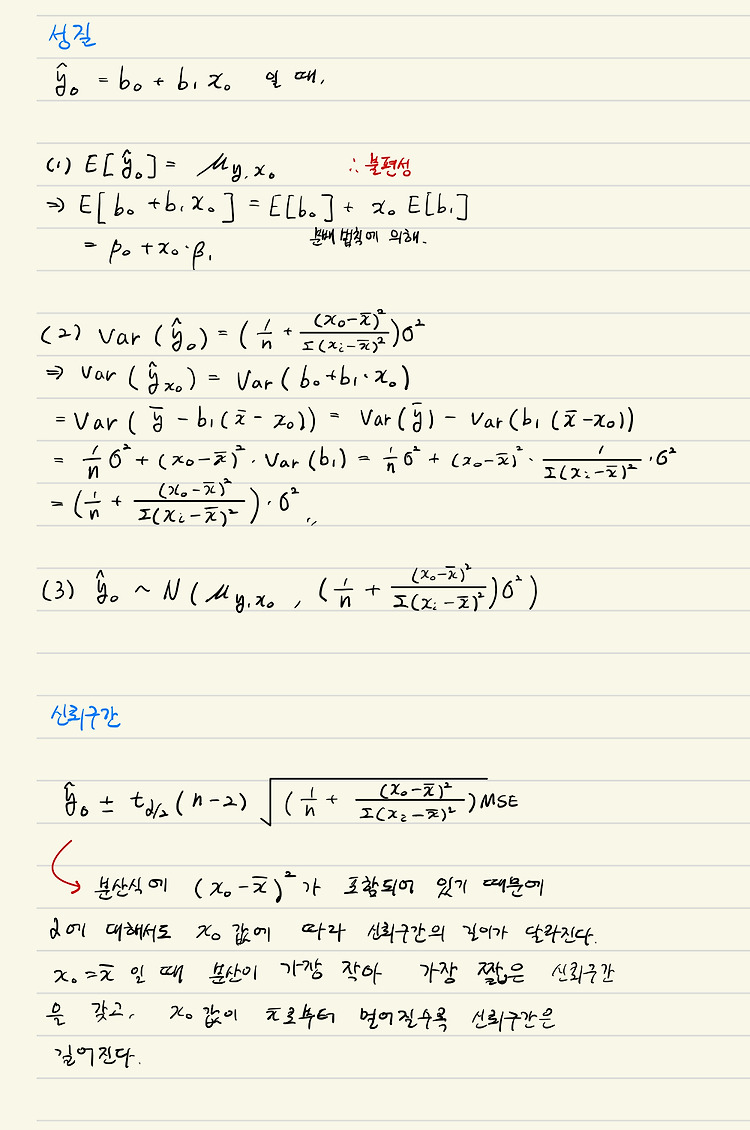 성질
ŷ₀ = b₀ + b₁x₀ 일 때,
(1) E[ŷ₀] = μ_{y,x₀} ∴ 불편성
⇒ E[b₀ + b₁x₀] = E[b₀] + x₀ E[b₁]
= β₀ + x₀·β₁ 분배 법칙에 의해.
(2) Var(ŷ₀) = (1/n + (x₀-x̄)²/Σ(xᵢ-x̄)²)σ²
⇒ Var(ŷ_{x₀}) = Var(b₀+b₁·x₀)
= Var(ȳ - b₁(x̄ - x₀)) = Var(ȳ) - Var(b₁(x̄-x₀))
= 1/n σ² + (x₀-x̄)²·Var(b₁) = 1/n σ² + (x₀-x̄)²·1/Σ(xᵢ-x̄)²·σ²
= (1/n + (x₀-x̄)²/Σ(xᵢ-x̄)²)·σ²,,
(3) ŷ₀ ~ N(μ_{y,x₀}, (1/n + (x₀-x̄)²/Σ(xᵢ-x̄)²)σ²)
신뢰구간
ŷ₀ ± t_{α/2}(n-2) √(1/n + (x₀-x̄)²/Σ(xᵢ-x̄)²)MSE
분산식에 (x₀-x̄)²가 포함되어 있기 때문에
α에 대해서도 x₀ 값에 따라 신뢰구간의 길이가 달라진다.
x₀=x̄ 일 때 분산이 가장 작아 가장 짧은 신뢰구간
을 갖고, x₀ 값이 x̄로부터 멀어질수록 신뢰구간은
길어진다.